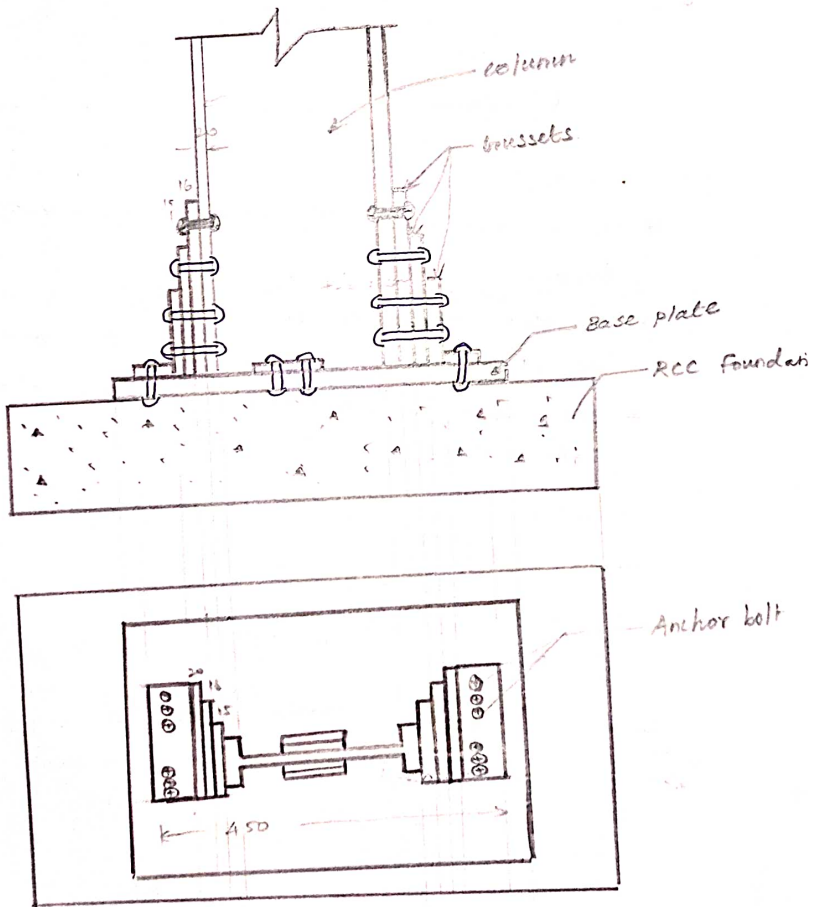 column
Gussets
20
16
15
Base plate
RCC Foundati
Anchor bolt
20
16
15
450